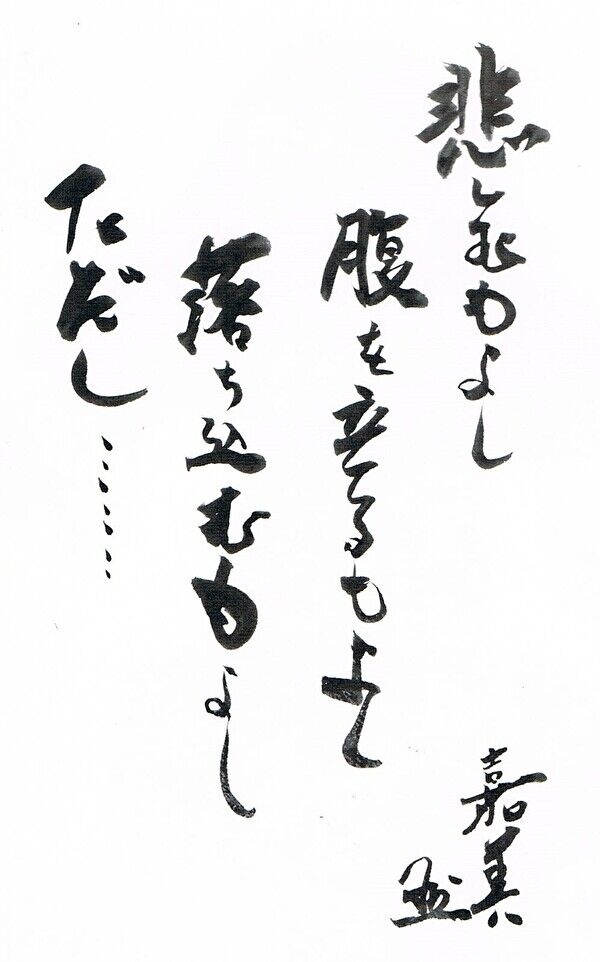 悲しむもよし
腹を立てるもよし
落ち込むもよし
ただし……
嘉美